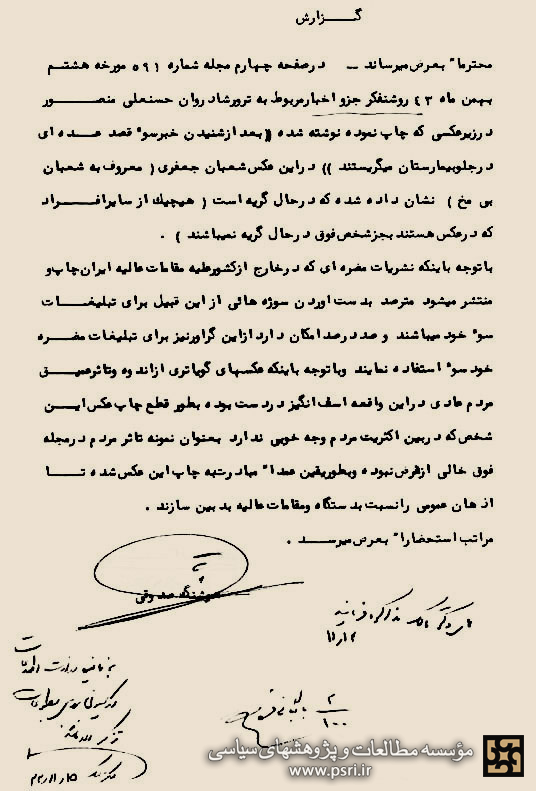 گـــزارش
محترما" بعرض میرساند – درصفحه چهارم مجله شماره ۵۹۱ مورخه هشتم
بهمن ماه ۴۳ روشنفکر جزو اخبار مربوط به ترورشاد روان حسنعلی منصور
درزیرعکسی که چاپ نموده نوشته شده ((بعد ازشنیدن خبرسو" قصد عده ای
درجلوبیمارستان میگریستند )) دراین عکس شعبان جعفری ( معروف به شعبان
بی مخ ) نشان داده شده که درحال گریه است ( هیچیك از سایرافراد
که درعکس هستند بجزشخص فوق درحال گریه نمیباشند ) .
باتوجه باینکه نشریات مضره ای که درخارج ازکشورعلیه مقامات عالیه ایران چاپ و
منتشر میشود مترصد بدست اوردن سوژه هائی از این قبیل برای تبلیغات
سو" خود میباشند و صد درصد امکان دارد ازاین گراورنیز برای تبلیغات مضره
خود سو" استفاده نمایند وباتوجه باینکه عکسهای گویاتری ازاندوه وتاثرعمیق
مردم عادی دراین واقعه اسف انگیز دردست بوده بطور قطع چاپ عکس این
شخص که دربین اکثریت مردم وجه خوبی ندارد بعنوان نمونه تاثر مردم درمجله
فوق خالی ازغرض نبوده وبطوریقین عمدا" مبادرت به چاپ این عکس شده تا
اذهان عمومی رانسبت بدستگاه ومقامات عالیه بدبین سازند .
مراتب استحضارا" بعرض میرسد .
هوشنگ صدوقی
۱۱/۱۲
۲/۱۰۰
۴۳/۱۱/۱۵
مؤسسه مطالعات و پژوهشهای سیاسی
www.psri.ir